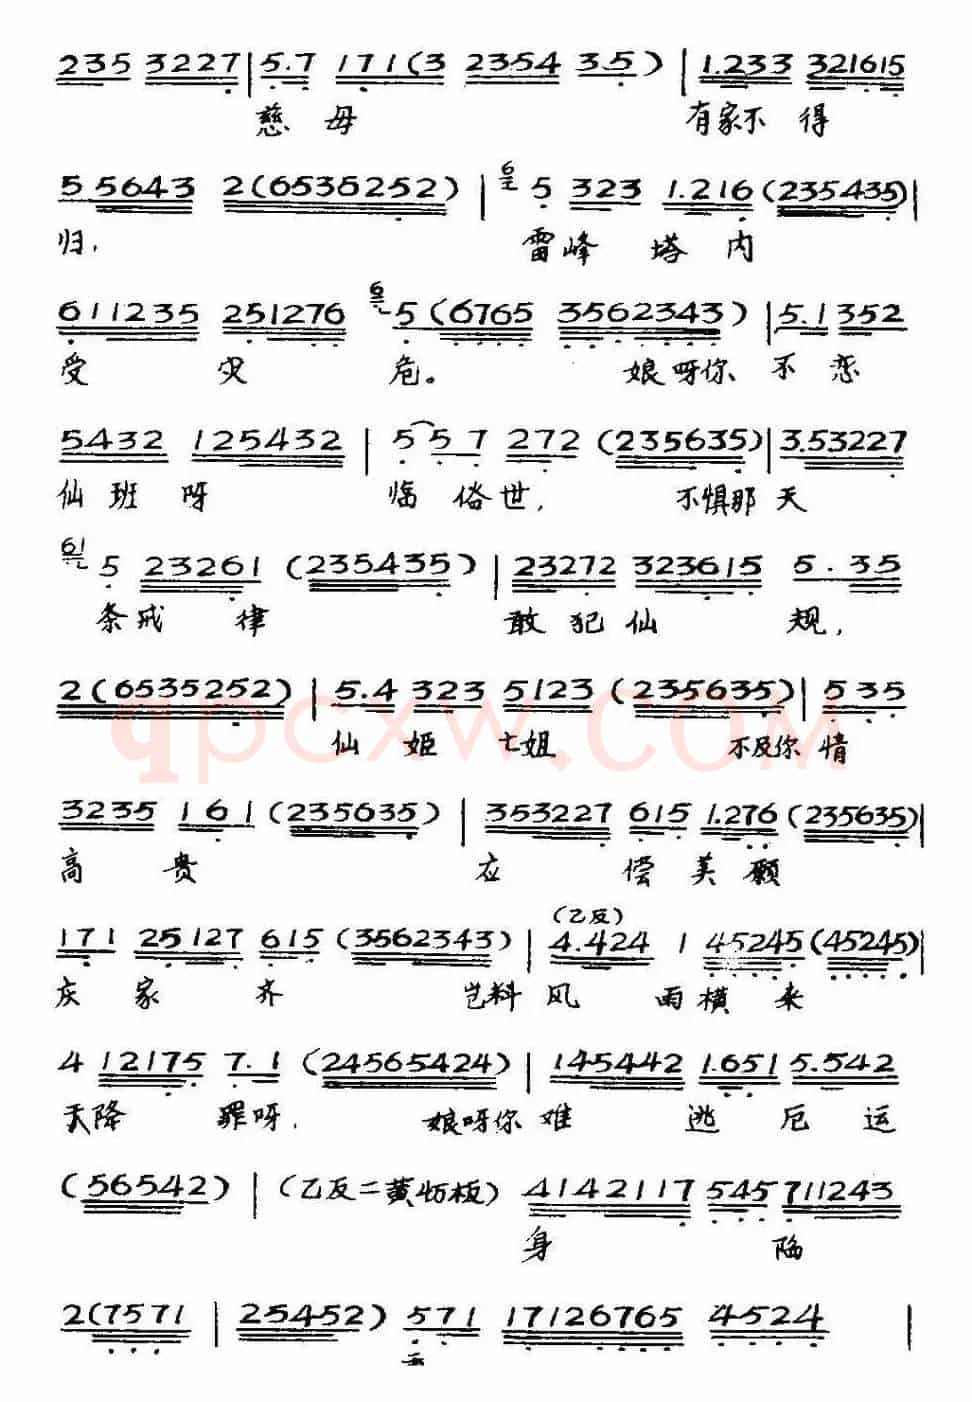 235 3227 | 5.7 171(3 2354 3.5) | 1.233 321615
慈母 有家不得
5 5643 2(6535252) | 6 5 323 1.216(235435) |
归, 雷峰塔内
611235 251276 6 5(6765 3562343) | 5.1352
受灾危。 娘呀你不恋
5432 125432 | 5 5 7 272 (235635) | 3.53227
仙班呀 临俗世, 不惧那天
61 5 23261 (235435) | 23272 323615 5.35
条戒律 敢犯仙规,
2(6535252) | 5.4 323 5123 (235635) | 535
qpcxw.COM
仙姬七姐 不及你情
3235 161(235635) | 353227 615 1.276(235635) |
高贵 应偿美愿
171 25127 615(3562343) | (乙反) 4.424 1 45245(45245) |
庆家齐 岂料风雨横来
4 12175 7.1 (24565424) | 145442 1.651 5.542
天降罪呀, 娘呀你难逃厄运
(56542) | (乙反二黄板) 4142117 545711243
身陷
2(7571 | 25452) 571 17126765 4524 |